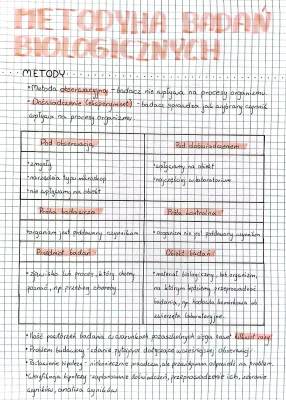 METODYKA BADAŃ
BIOLOGICZNYCH
METODY
• Metoda obserwacyjna - badacz nie wpływa na procesy organizmu
• Doświadczenie (eksperyment) - badacz sprawdza jak wybrany czynnik
wpływa na procesy organizmu.
Pod obserwacją
Pod doświadczeniem
• zmysły
• narzędzia typu mikroskop
• nie wpływamy na obiekt
• wpływamy na obiekt
• najczęściej w laboratorium
Próba badawcza
Próba kontrolna
• organizm jest poddawany czynnikom
• organizm nie jest poddawany czynnikom
Przedmiot badań
Obiekt badań
• zjawisko lub proces, który chcemy
poznać, np. przebieg choroby
• materiał biologiczny, lub organizm,
na którym będziemy przeprowadzać
badania, np. hodowla komórkowa lub
zwierzęta laboratoryjne.
• Ilość powtórzeń badania w warunkach pozaszkolnych kilka razy.
• Problem badawczy - zdanie pytające dotyczące wcześniejszej obserwacji
• Postawienie hipotezy - odpowiedź na problem.
• Weryfikacja hipotezy - zaplanowanie doświadczeń, przeprowadzenie ich, zebranie
wyników, analiza wyników